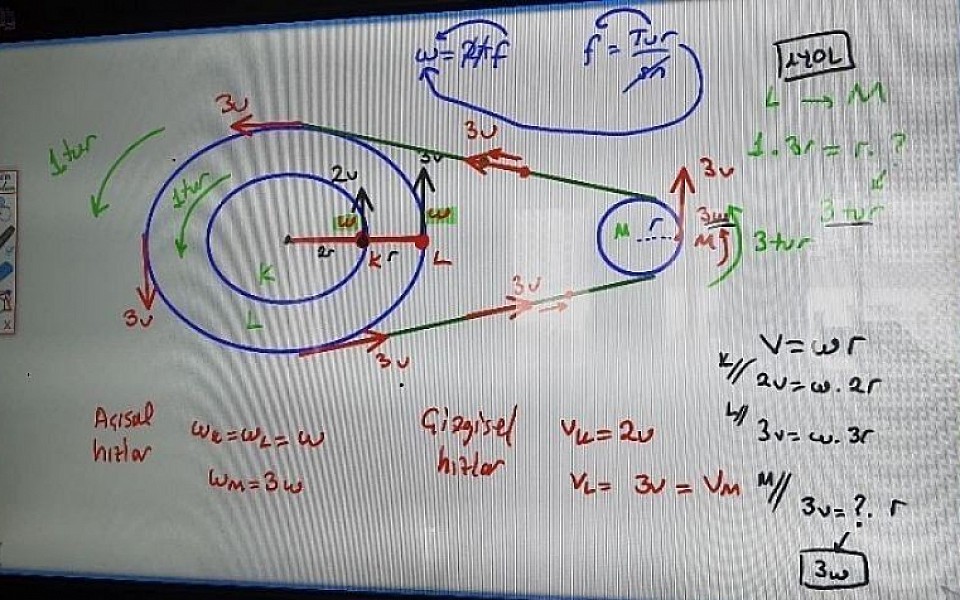 ω = 2πf
f = Tur / sn
1.YOL
L → M
1.3r = r. ?
3 tur
1 tur
1 tur
3v
3v
2v
3v
3v
ω
ω
3ω
M
r
M
3 tur
2r
K
r
L
K
L
3v
3v
3v
V = ωr
K// 2v = ω.2r
L// 3v = ω.3r
M// 3v = ?. r
3ω
Açısal hızlar
ωK = ωL = ω
ωM = 3ω
Çizgisel hızlar
VK = 2v
VL = 3v = VM